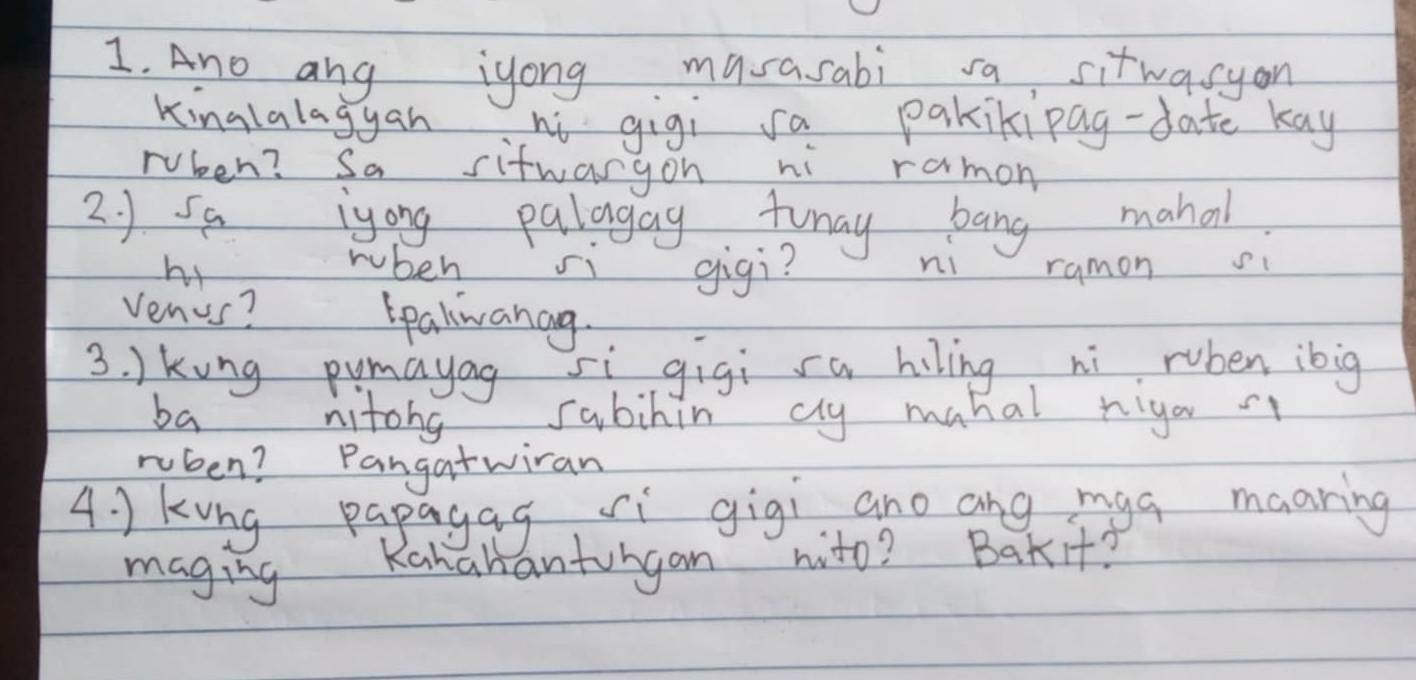 1. Ano ang iyong masasabi sa sitwasyon
kinalalagyan ni gigi sa pakikipag-date kay
ruben? Sa sitwasyon ni ramon
2.) sa iyong palagay tunay bang mahal
ni ruben si gigi? ni ramon si
venus? Ipaliwanag.
3.) kung pumayag si gigi sa hiling ni ruben ibig
ba nitong sabihin ay mahal niya si
ruben? Pangatwiran
4.) kung papayag si gigi ano ang mga maaring
maging kahahantungan nito? Bakit?